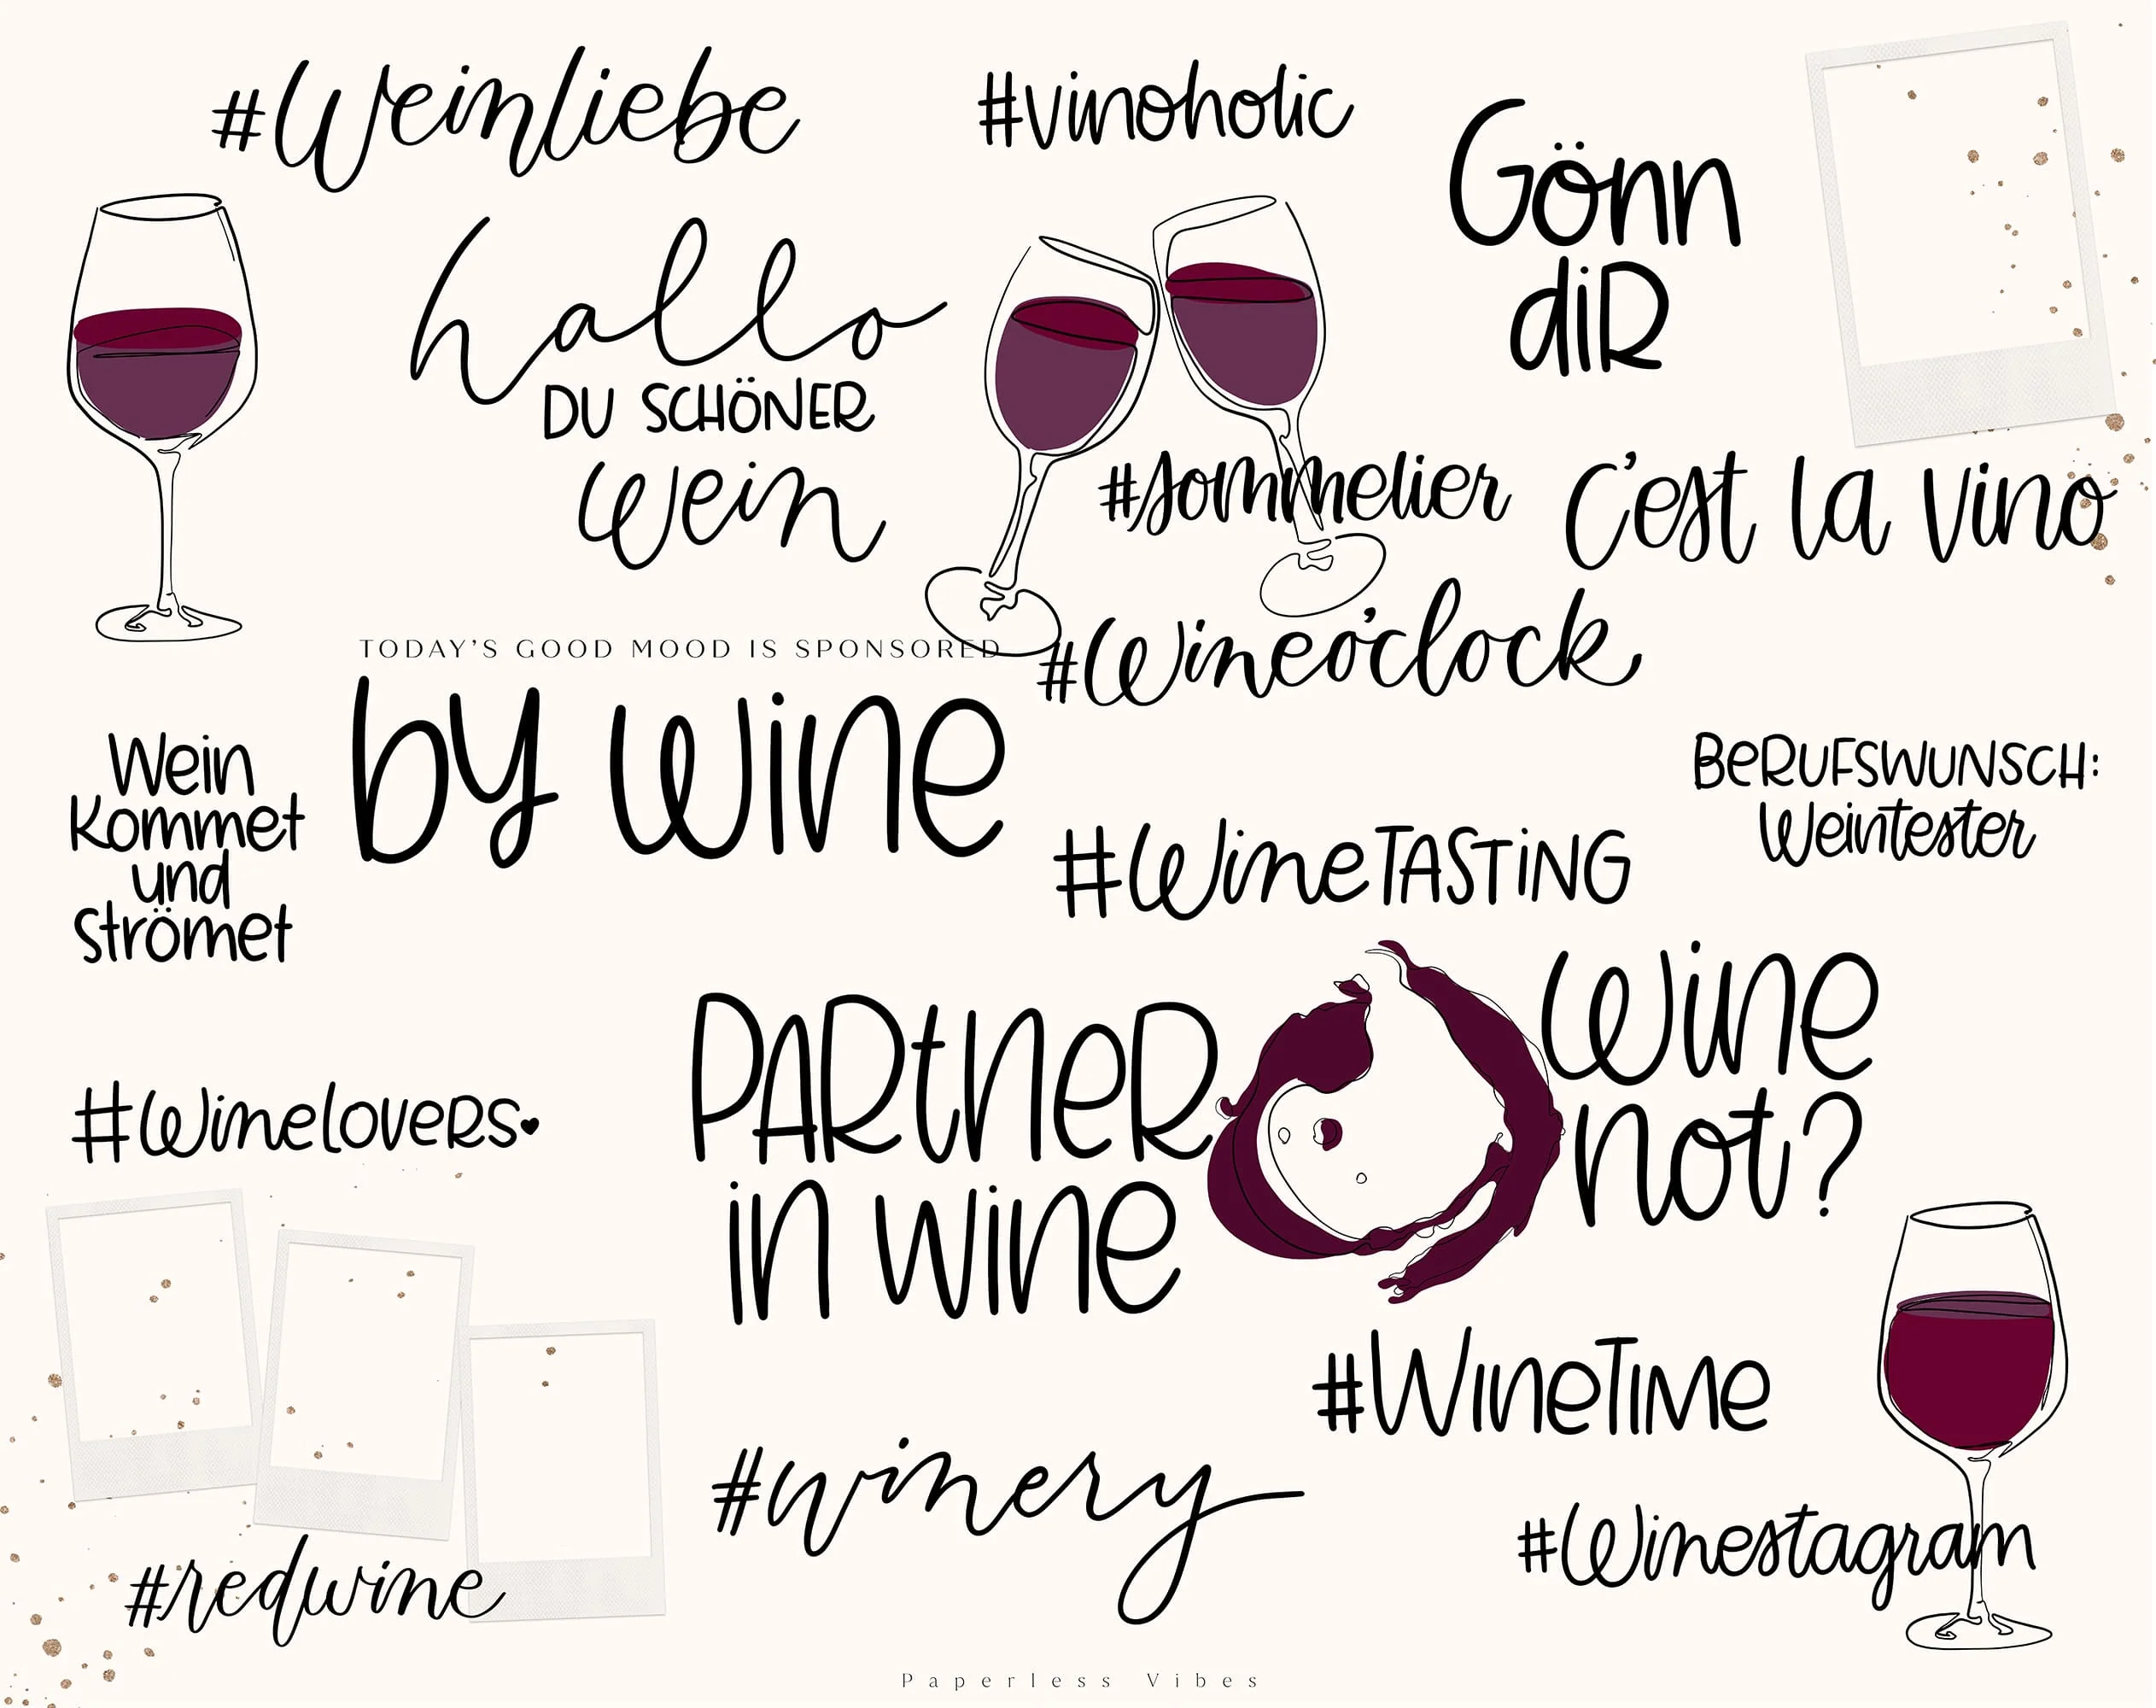 #Weinliebe
#vinoholic
Gönn
dir
hallo
DU SCHÖNER
Wein
#sommelier
C'est la vino
#Wineo'clock
TODAY'S GOOD MOOD IS SPONSORED
by wine
Wein
kommet
und
strömet
BERUFSWUNSCH:
Weintester
#WineTASTING
PARtneR
in wine
Wine
not?
#Winelovers
#WineTime
#winery
#Winestagram
#redwine
Paperless Vibes